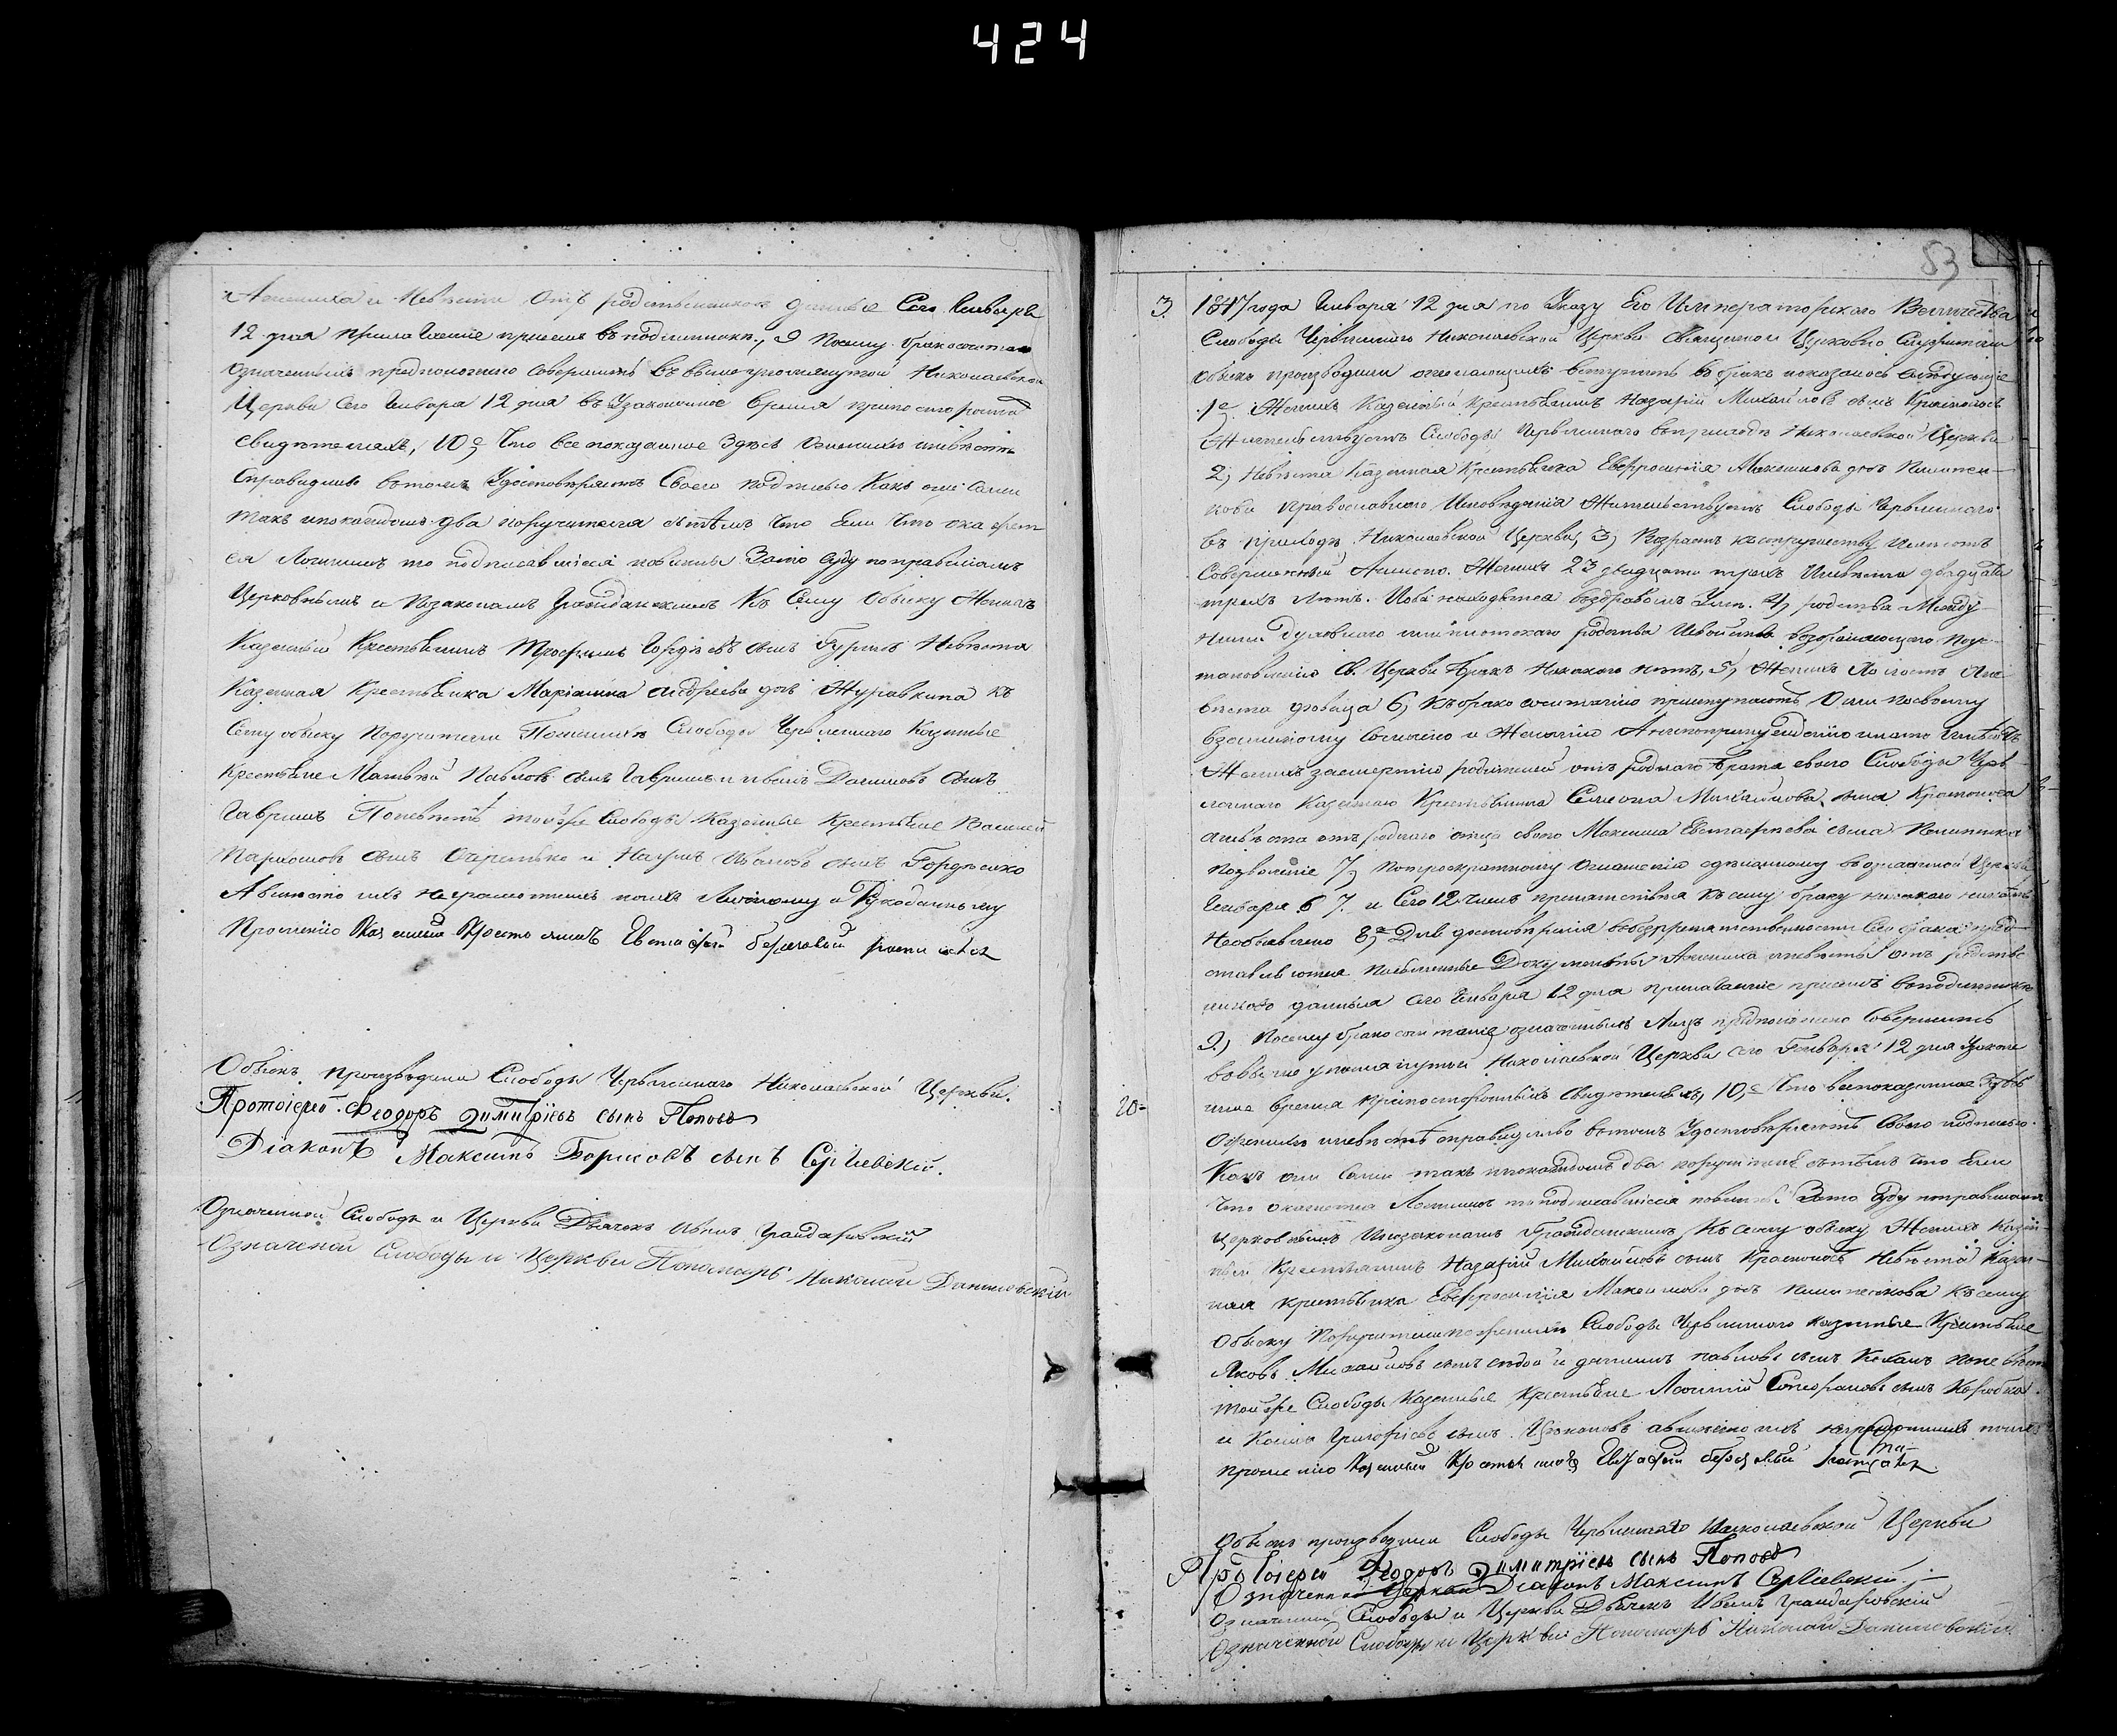 424
Жениха и Невѣсти Отъ родственниковъ данные Сего Генваря
12 дня приглашение принялъ въ подлинникъ, 9 Посему бракосочетание
Означенныхъ предположено совершить въ вышеупомянутой Николаевской
Церкви Сего Генваря 12 дня въ Узаконенное время при постороннихъ
Свидѣтеляхъ, 10е Что все показанное Здѣсь о женихѣ и невѣстѣ
Справедливо вотомъ Удостовѣряютъ Своею подписью Какъ они Сами
такъ и по каждомъ два поручителя съ тѣмъ что Если Что окажет
ся Ложнымъ то подписавшiеся повинны Зато суду по правиламъ
Церковнымъ и По законамъ Гражданскимъ Къ Сему Обыску Женихъ
Казенный Крестьянинъ Трофимъ Гордѣевъ сынъ Невѣста
Казенная Крестьянка Марiанна Андреева дочь Журавкина къ
Сему обыску Поручители По женихѣ Слободы Червленнаго Казенные
Крестьяне Матвѣй Павловъ сынъ Гавришъ и Иванъ Даниловъ сынъ
Гавришъ По невѣстѣ той же Слободы Казенные Крестьяне Василей
Пархомовъ сынъ и Наумъ Ивановъ сынъ
А вместо ихъ неграмотныхъ по ихъ Личному и Рукоданному
Прошенiю Казенный Крестьянинъ Евстафiй Береговый росписался
Обыскъ производили Слободы Червленнаго Николаевской Церкви.
Протоiерей Феодоръ Димитрiевъ сынъ Поповъ
Дiаконъ Максимъ Борисовъ сынъ Сергiевскiй.
Означенной Слободы и Церкви Дьячекъ Иванъ
Означеной Слободы и Церкви Пономарь Николай Даниловскiй
53
3. 1847 года Генваря 12 дня по Указу Его Императорскаго Величества
Слободы Червленнаго Николаевской Церкви Священно и Церковно Служители
обыскъ производили о желающихъ вступить въ бракъ и оказалось следующее
1е Женихъ Казенный Крестьянинъ Назарiй Михайловъ сынъ
Жительствуетъ Слободы Червленнаго въ приходѣ Николаевской Церкви
2, Невѣста Казенная Крестьянка Евфросинiя Максимова дочь Пилипен-
кова Православнаго Исповѣданiя Жительствуетъ Слободы Червленнаго
въ приходѣ Николаевской Церкви, 3, Возрастъ къ супружеству имѣютъ
Совершенный А именно. Женихъ 23 двадцати трехъ И невѣста двадцати
трехъ лѣтъ. И оба находятся въ здравомъ Умѣ. 4, родства Между
ними духовнаго или плотскаго родства И свойства возбраняющаго по ус-
тановленiю Св. Церкви бракъ Никакого нѣтъ, 5, Женихъ Холостъ А не
вѣста девица 6, Къ бракосочетанию приступаютъ Они по своему
взаимному Согласiю и Желанiю А не по принужденiю на то имѣютъ
Женихъ за смертiю родителей отъ роднаго брата своего Слободы Черв-
леннаго Казеннаго Крестьянина Семиона Михайлова сына
А невѣста отъ роднаго отца своего Максима Евстафiева сына Пилипенка
позволенiе 7, По троекратному Оглашенiю сдѣланному въ означенной Церкви
Генваря 6 7. и Сего 12 Чиселъ препятствiя Къ сему браку никакого никѣмъ
Необъявлено 8,е Для достовѣрiя о безпрепятственности Сего брака пред-
ставляются письменные Документы Жениха и невѣсты отъ родствен-
никовъ данныя сего Генваря 12 дня приглашенiе принялъ въ подлинникѣ
9,) Посему бракосочетанiе означенныхъ Лицъ предположено Совершить
въ вышеупомянутой Николаевской Церкви сего Генваря 12 дня Узакон
20- ное время при постороннихъ Свидетеляхъ, 10,е Что все показанное Здѣсь
О женихѣ и невѣстѣ справедливо вотомъ Удостовѣряютъ своею подписью.
Какъ они Сами такъ и по каждомъ два поручителя съ тѣмъ что Если
Что окажется Ложнымъ то подписавшiеся повинны Зато Суду по правиламъ
Церковнымъ И по законамъ Гражданскимъ Къ сему обыску Женихъ Казен-
ный Крестьянинъ Назарiй Михайловъ сынъ Невѣста Казен-
ная крестьянка Евфросинiя Максимова дочь Пилипенкова Къ сему
Обыску Поручители по женихѣ Слободы Червленнаго казенные Крестьяне
Яковъ Михайловъ сынъ и Данiилъ Павловъ сынъ По невѣстѣ
той же Слободы Казенные Крестьяне Леонтiй сынъ
и Косма Григорiевъ сынъ а вместо ихъ неграмотныхъ по ихъ
прошенiю Казенный Крестьянинъ Евстафiй Береговый росписался
Обыскъ производили Слободы Червленнаго Николаевской Церкви
Протоiерей Феодоръ Димитрiевъ сынъ Поповъ
Означенной Церкви Дiаконъ Максимъ Сергiевскiй
Означенной Слободы и Церкви Дьячекъ Иванъ
Означенной Слободы и Церкви Пономарь Николай Даниловскiй